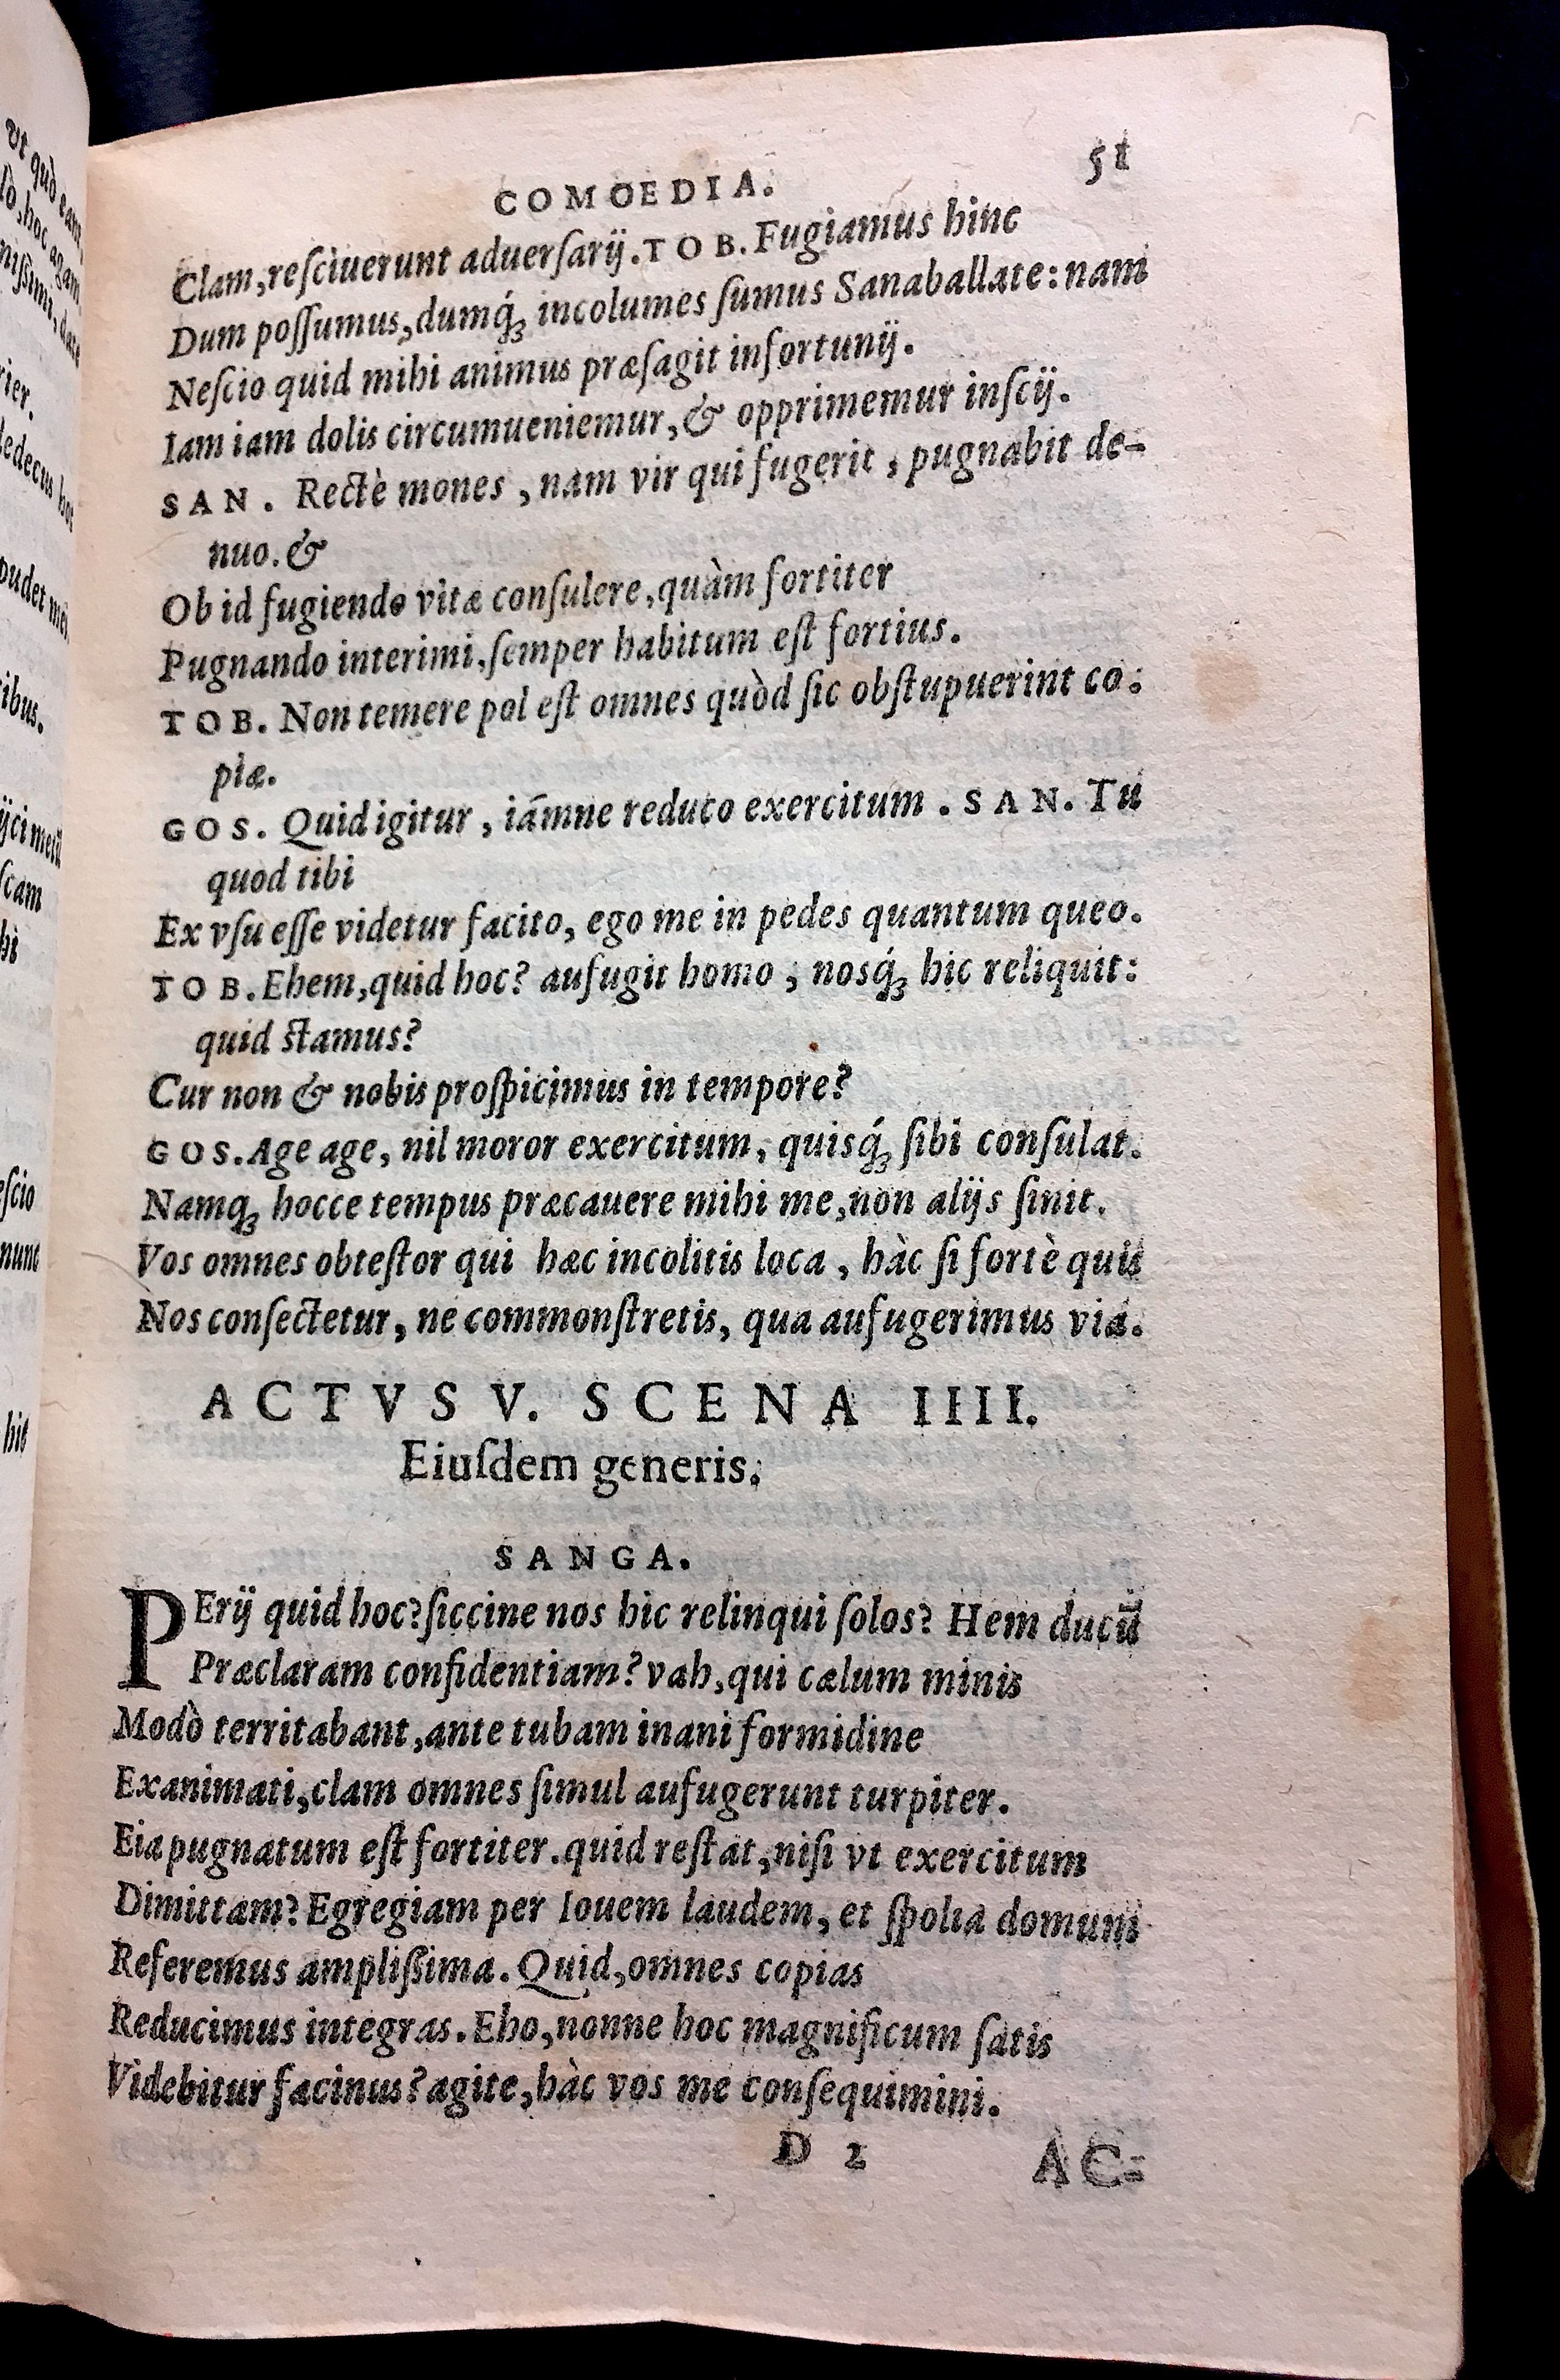 COMOEDIA. 51
Clam, reſciuerunt aduerſarij. TOB. Fugiamus hinc
Dum poſſumus, dumq́ꝫ incolumes ſumus Sanaballate: nam
Neſcio quid mihi animus præſagit infortunij.
Iam iam dolis circumueniemur, & opprimemur inſcij.
SAN. Rectè mones, nam vir qui fugerit, pugnabit de-
nuo. &
Ob id fugiendo vitæ conſulere, quàm fortiter
Pugnando interimi, ſemper habitum eſt fortius.
TOB. Non temere pol eſt omnes quòd ſic obſtupuerint co-
piæ.
GOS. Quid igitur, iámne reduco exercitum. SAN. Tu
quod tibi
Ex vſu eſſe videtur facito, ego me in pedes quantum queo.
TOB. Ehem, quid hoc? aufugit homo, nosq́ꝫ hic reliquit:
quid ſtamus?
Cur non & nobis proſpicimus in tempore?
GOS. Age age, nil moror exercitum, quisq́ꝫ ſibi conſulat.
Namqꝫ hocce tempus præcauere mihi me, non alijs ſinit.
Vos omnes obteſtor qui hæc incolitis loca, hàc ſi fortè quis
Nos conſectetur, ne commonſtretis, qua aufugerimus via.
ACTVS V. SCENA IIII.
Eiuſdem generis.
SANGA.
PErij quid hoc? ſiccine nos hic relinqui ſolos? Hem ducū
Præclaram confidentiam? vah, qui cælum minis
Modò territabant, ante tubam inani formidine
Exanimati, clam omnes ſimul aufugerunt turpiter.
Eia pugnatum eſt fortiter. quid reſtat, niſi vt exercitum
Dimittam? Egregiam per Iouem laudem, et ſpolia domum
Referemus ampliſsima. Quid, omnes copias
Reducimus integras. Eho, nonne hoc magnificum ſatis
Videbitur facinus? agite, hàc vos me conſequimini.
D 2 AC-